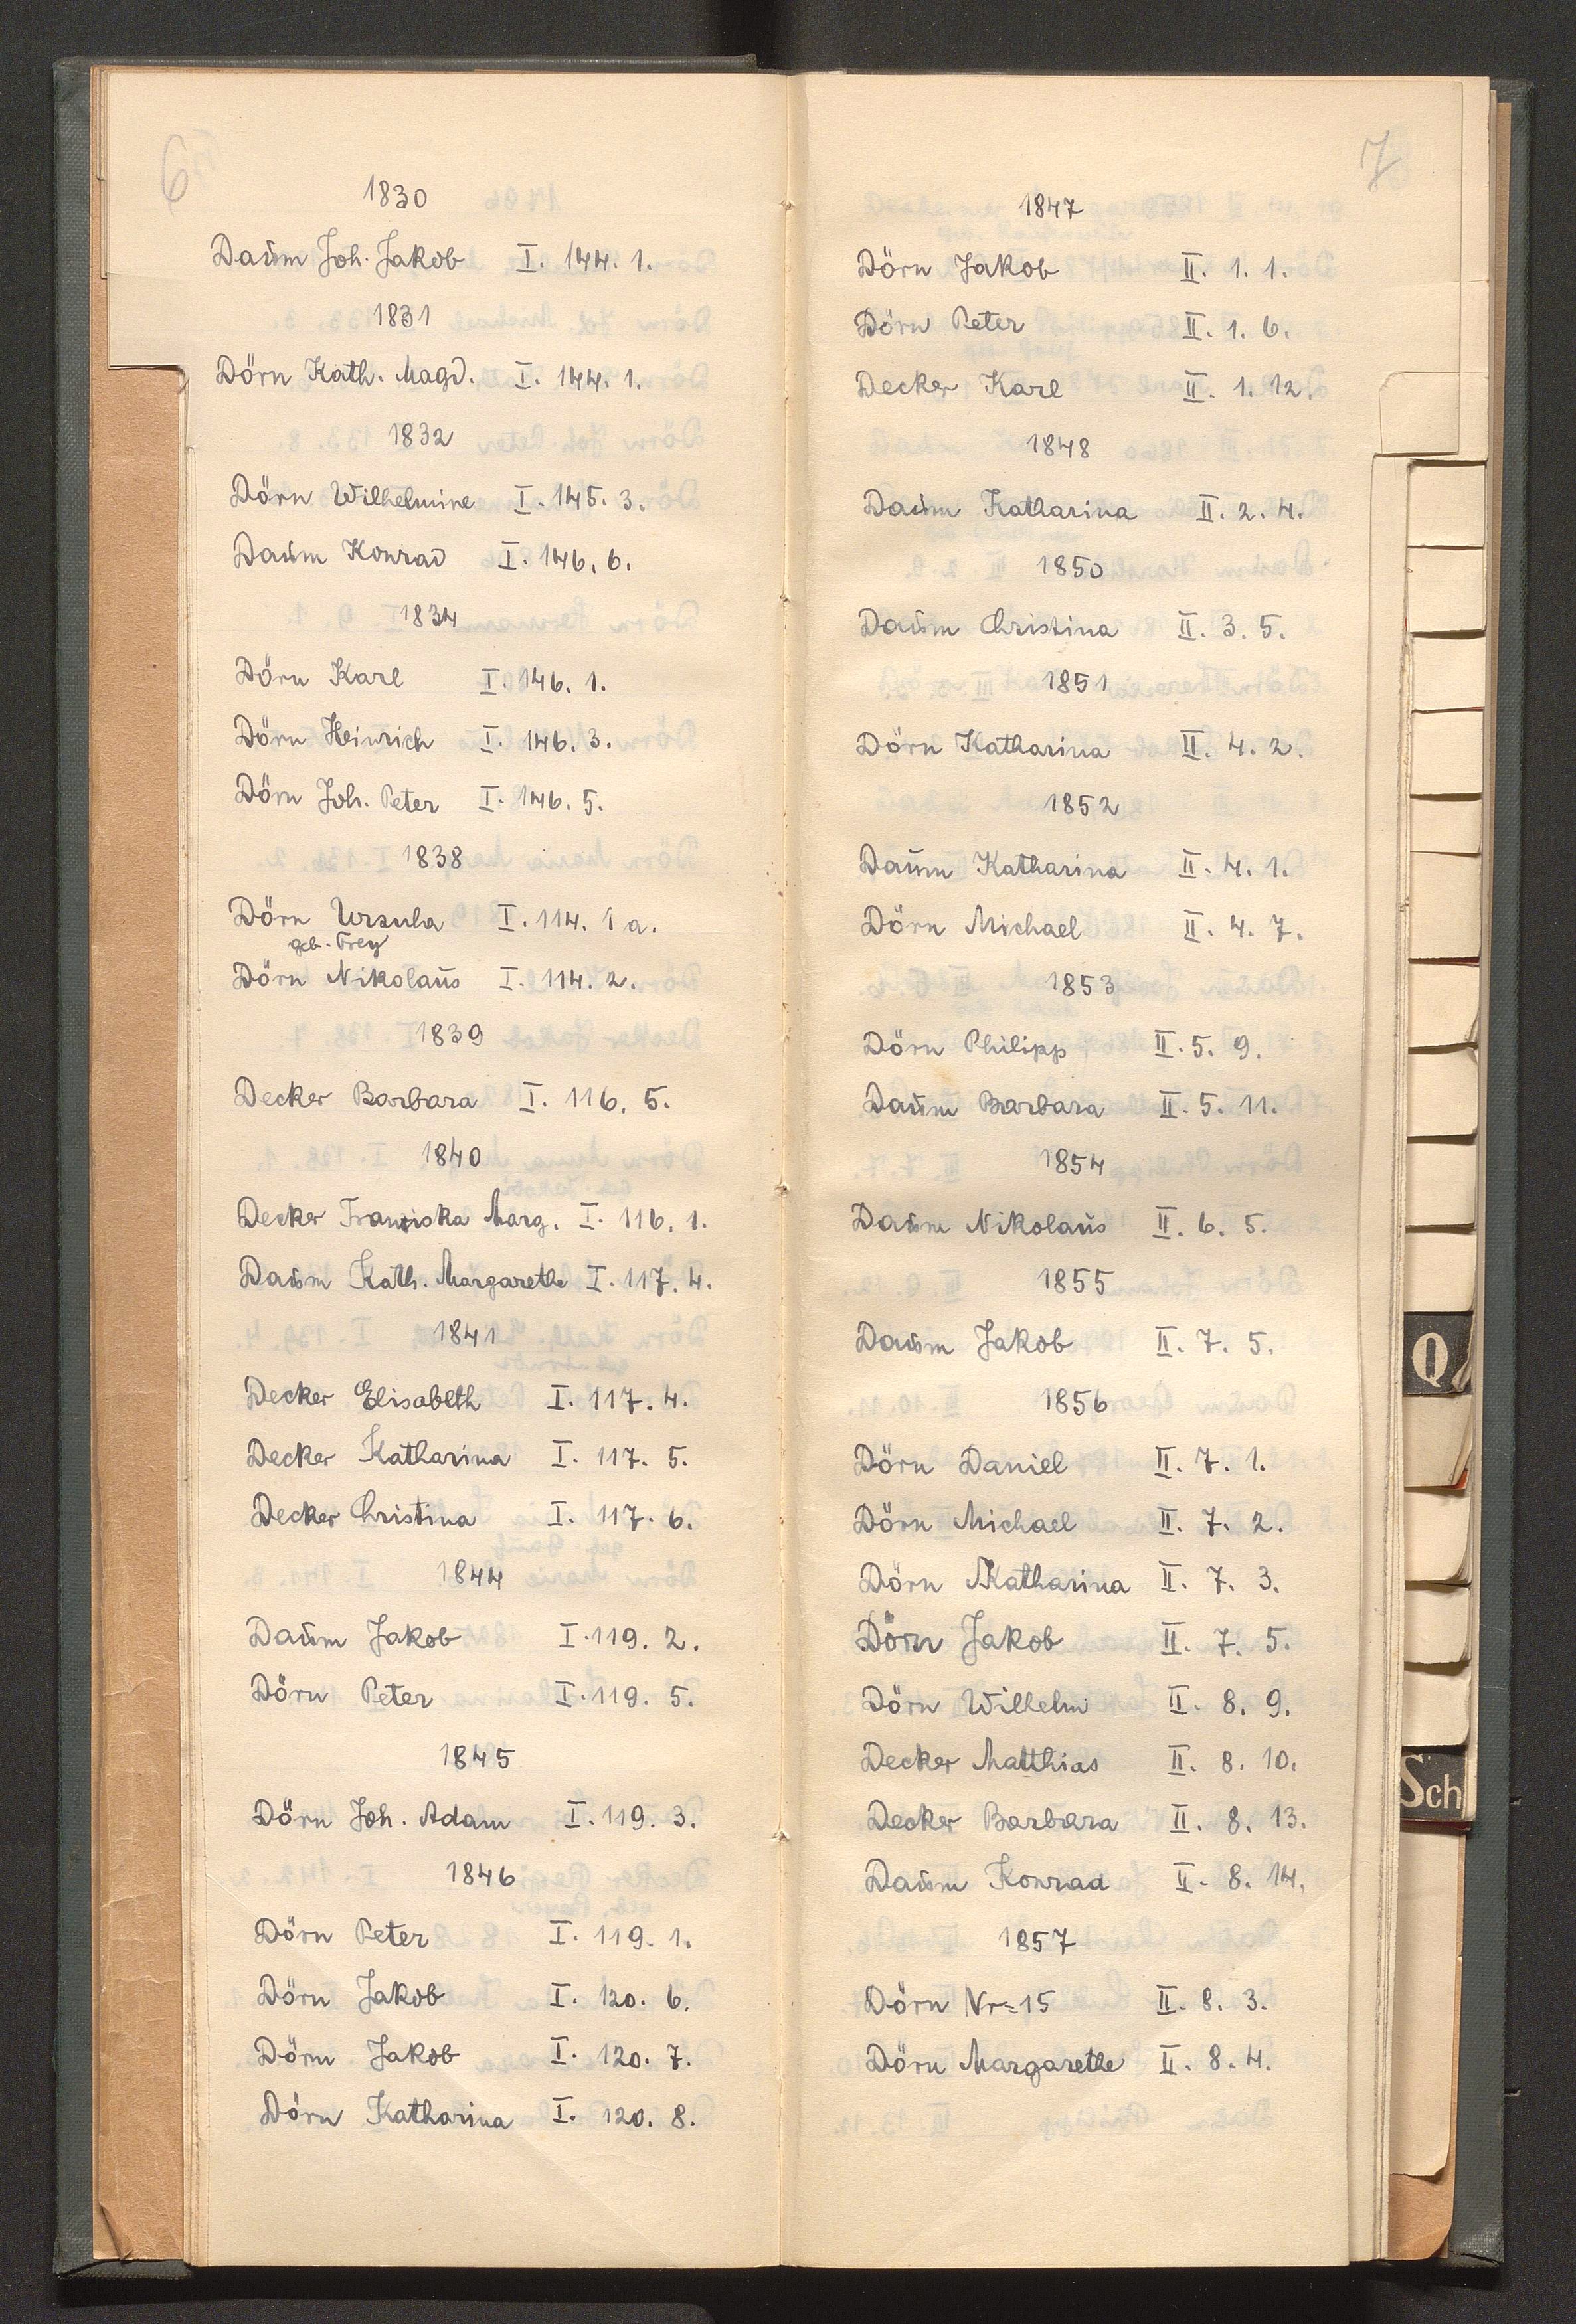 6
1830
Daum Joh. Jakob I. 144. 1.
1831
Dörn Kath. Magd. I. 144. 1.
1832
Dörn Wilhelmine I. 145. 3.
Daum Konrad I. 146. 6.
1834
Dörn Karl I. 146. 1.
Dörn Heinrich I. 146. 3.
Dörn Joh. Peter I. 146. 5.
1838
Dörn Ursula I. 114. 1 a.
geb. Frey
Dörn Nikolaus I. 114. 2.
1839
Decker Barbara I. 116. 5.
1840
Decker Franziska Marg. I. 116. 1.
Daum Kath. Margarethe I. 117. 4.
1841
Decker Elisabeth I. 117. 4.
Decker Katharina I. 117. 5.
Decker Christina I. 117. 6.
1844
Daum Jakob I. 119. 2.
Dörn Peter I. 119. 5.
1845
Dörn Joh. Adam I. 119. 3.
1846
Dörn Peter I. 119. 1.
Dörn Jakob I. 120. 6.
Dörn Jakob I. 120. 7.
Dörn Katharina I. 120. 8.
7
1847
Dörn Jakob II. 1. 1.
Dörn Peter II. 1. 6.
Decker Karl II. 1. 12.
1848
Daum Katharina II. 2. 4.
1850
Daum Christina II. 3. 5.
1851
Dörn Katharina II. 4. 2.
1852
Daum Katharina II. 4. 1.
Dörn Michael II. 4. 7.
1853
Dörn Philipp II. 5. 9.
Daum Barbara II. 5. 11.
1854
Daum Nikolaus II. 6. 5.
1855
Daum Jakob II. 7. 5.
1856
Dörn Daniel II. 7. 1.
Dörn Michael II. 7. 2.
Dörn Katharina II. 7. 3.
Dörn Jakob II. 7. 5.
Dörn Wilhelm II. 8. 9.
Decker Matthias II. 8. 10.
Decker Barbara II. 8. 13.
Daum Konrad II. 8. 14.
1857
Dörn Nr=15 II. 8. 3.
Dörn Margarethe II. 8. 4.
Q
Sch